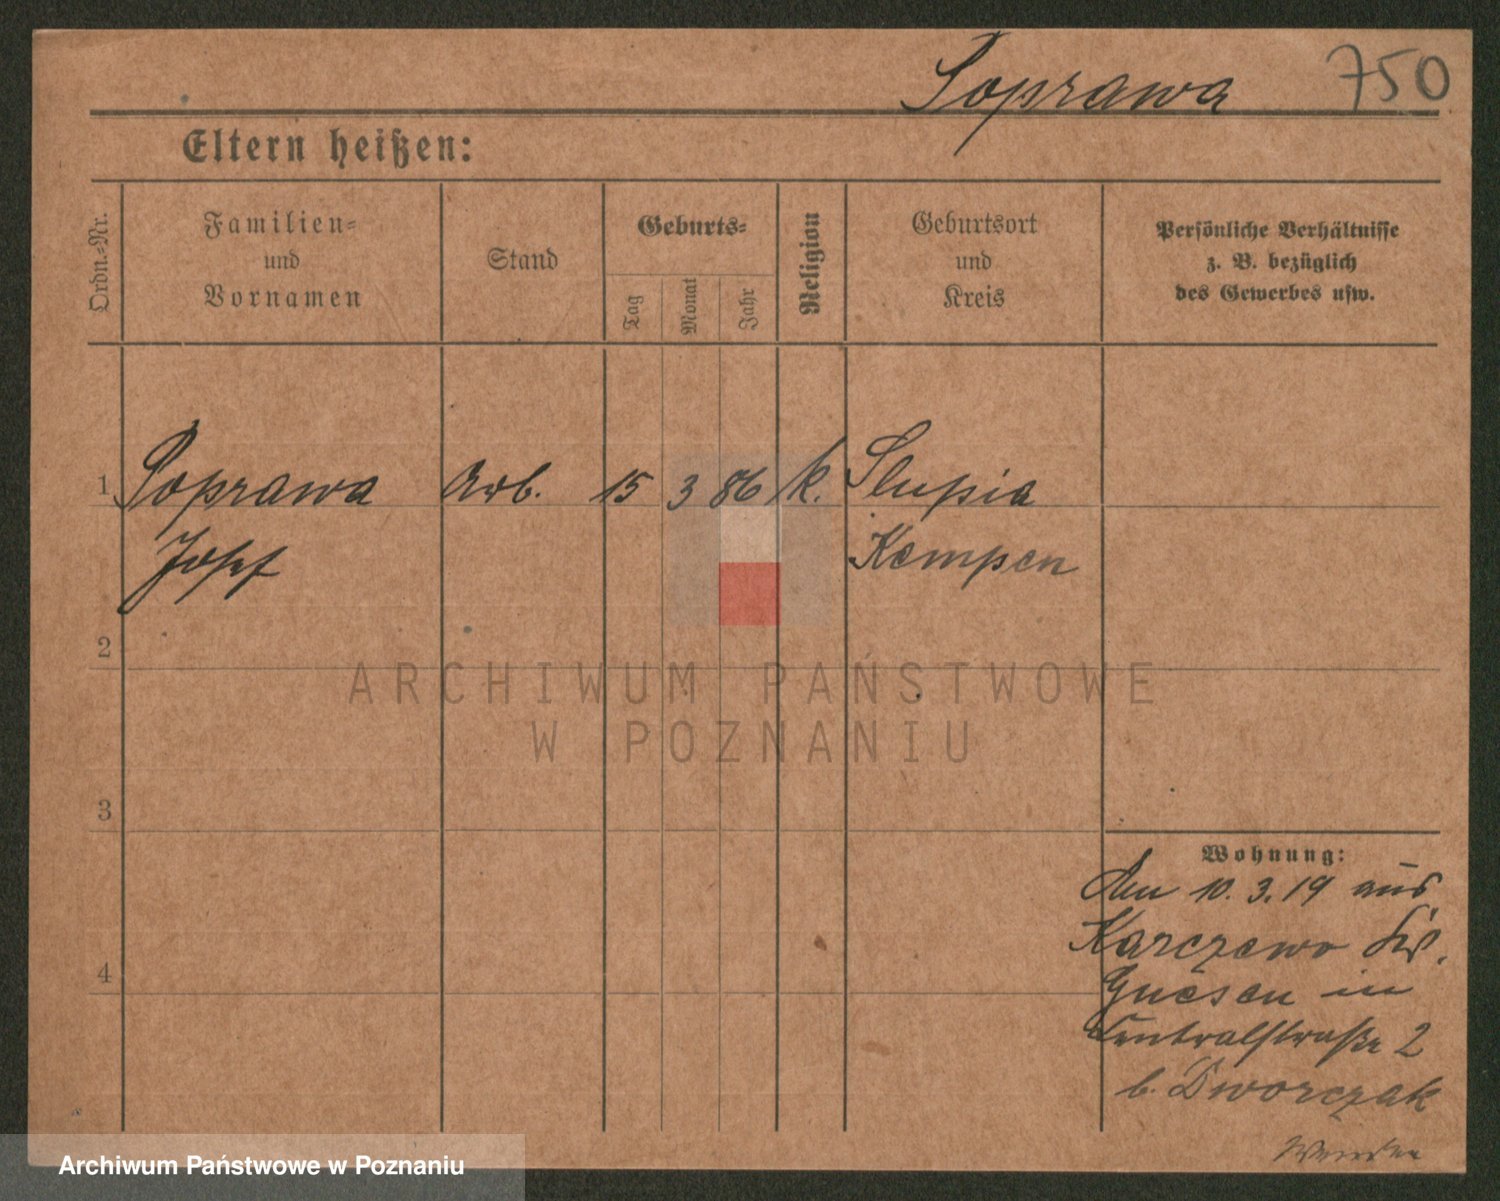 Poprawa 750
Eltern heißen:
Ordn.-Nr.
Familien-
und
Vornamen
Stand
Geburts-
Tag
Monat
Jahr
Religion
Geburtsort
und
Kreis
Persönliche Verhältnisse
z. B. bezüglich
des Gewerbes usw.
1 Poprawa Arb. 15 3 86 k. Slupia
Josef Kempen
2
ARCHIWUM PAŃSTWOWE
W POZNANIU
3
Wohnung:
den 10.3.19 aus
Karczewo Krs.
4
Gnesen in
Centralstraße 2
b. Dworczak
Archiwum Państwowe w Poznaniu